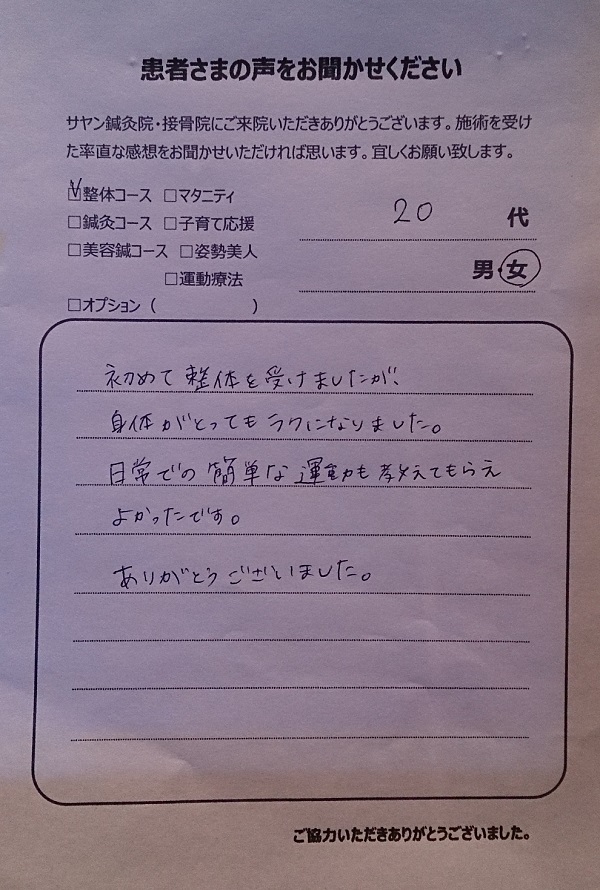 患者さまの声をお聞かせください
サヤン鍼灸院・接骨院にご来院いただきありがとうございます。施術を受け
た率直な感想をお聞かせいただければ思います。宜しくお願い致します。
☑整体コース □マタニティ
□鍼灸コース □子育て応援
20 代
□美容鍼コース □姿勢美人
男・女
□運動療法
□オプション（ ）
初めて整体を受けましたが、
身体がとってもラクになりました。
日常での簡単な運動も教えてもらえ
よかったです。
ありがとうございました。
ご協力いただきありがとうございました。